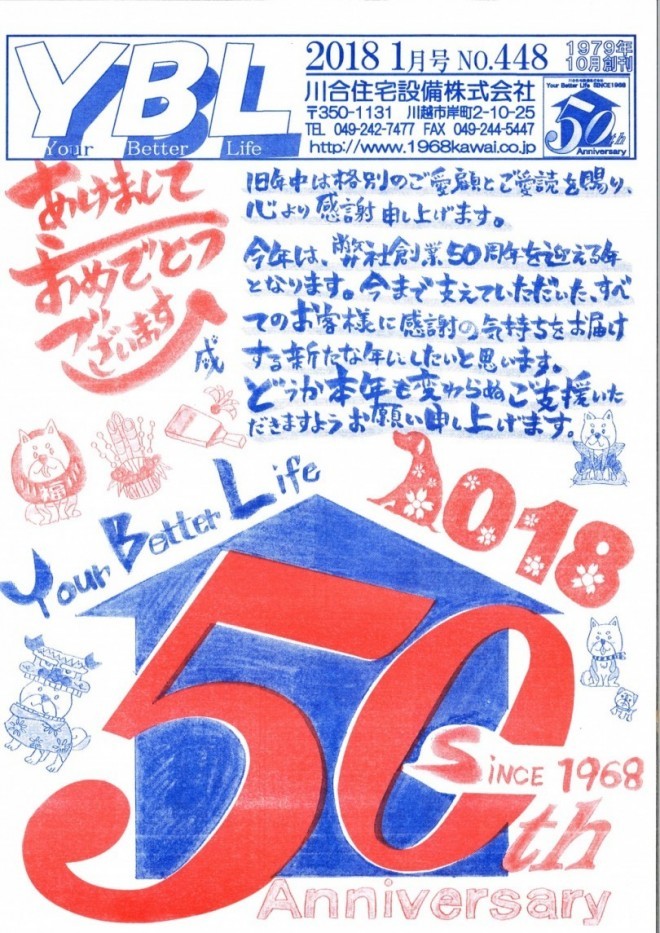 YBL
Your Better Life
2018 1月号 NO.448
1979年
10月創刊
川合住宅設備株式会社
〒350-1131 川越市岸町2-10-25
TEL 049-242-7477 FAX 049-244-5447
http://www.1968kawai.co.jp
Your Better Life SINCE1968
50th
Anniversary
あけまして
おめでとう
ございます
戌
旧年中は格別のご愛顧とご愛読を賜り、
心より感謝申し上げます。
今年は、弊社創業50周年を迎える年
となります。今まで支えていただいた、すべ
てのお客様に感謝の気持ちをお届け
する新たな年にしたいと思います。
どうか本年も変わらぬご支援いた
だきますようお願い申し上げます。
福
Your Better Life
2018
50th
SINCE 1968
Anniversary